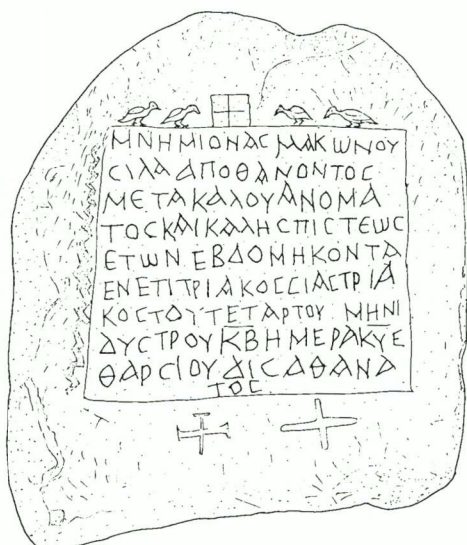 ΜΝΗΜΙΟΝΑϹΜΑΚΩΝΟΥ
ϹΙΛΑΑΠΟΘΑΝΟΝΤΟϹ
ΜΕΤΑΚΑΛΟΥΑΝΟΜΑ
ΤΟϹΚΑΙΚΑΛΗϹΠΙϹΤΕΩϹ
ΕΤΩΝΕΒΔΟΜΗΚΟΝΤΑ
ΕΝΕΤΙΤΡΙΑΚΟϹϹΙΑϹΤΡΙΑ
ΚΟϹΤΟΥΤΕΤΑΡΤΟΥ ΜΗΝΙ
ΔΥϹΤΡΟΥΚ̅Β̅ΗΜΕΡΑΚ̅Υ̅Ε
ΘΑΡϹΙΟΥΔΙϹΑΘΑΝΑ
ΤΟϹ